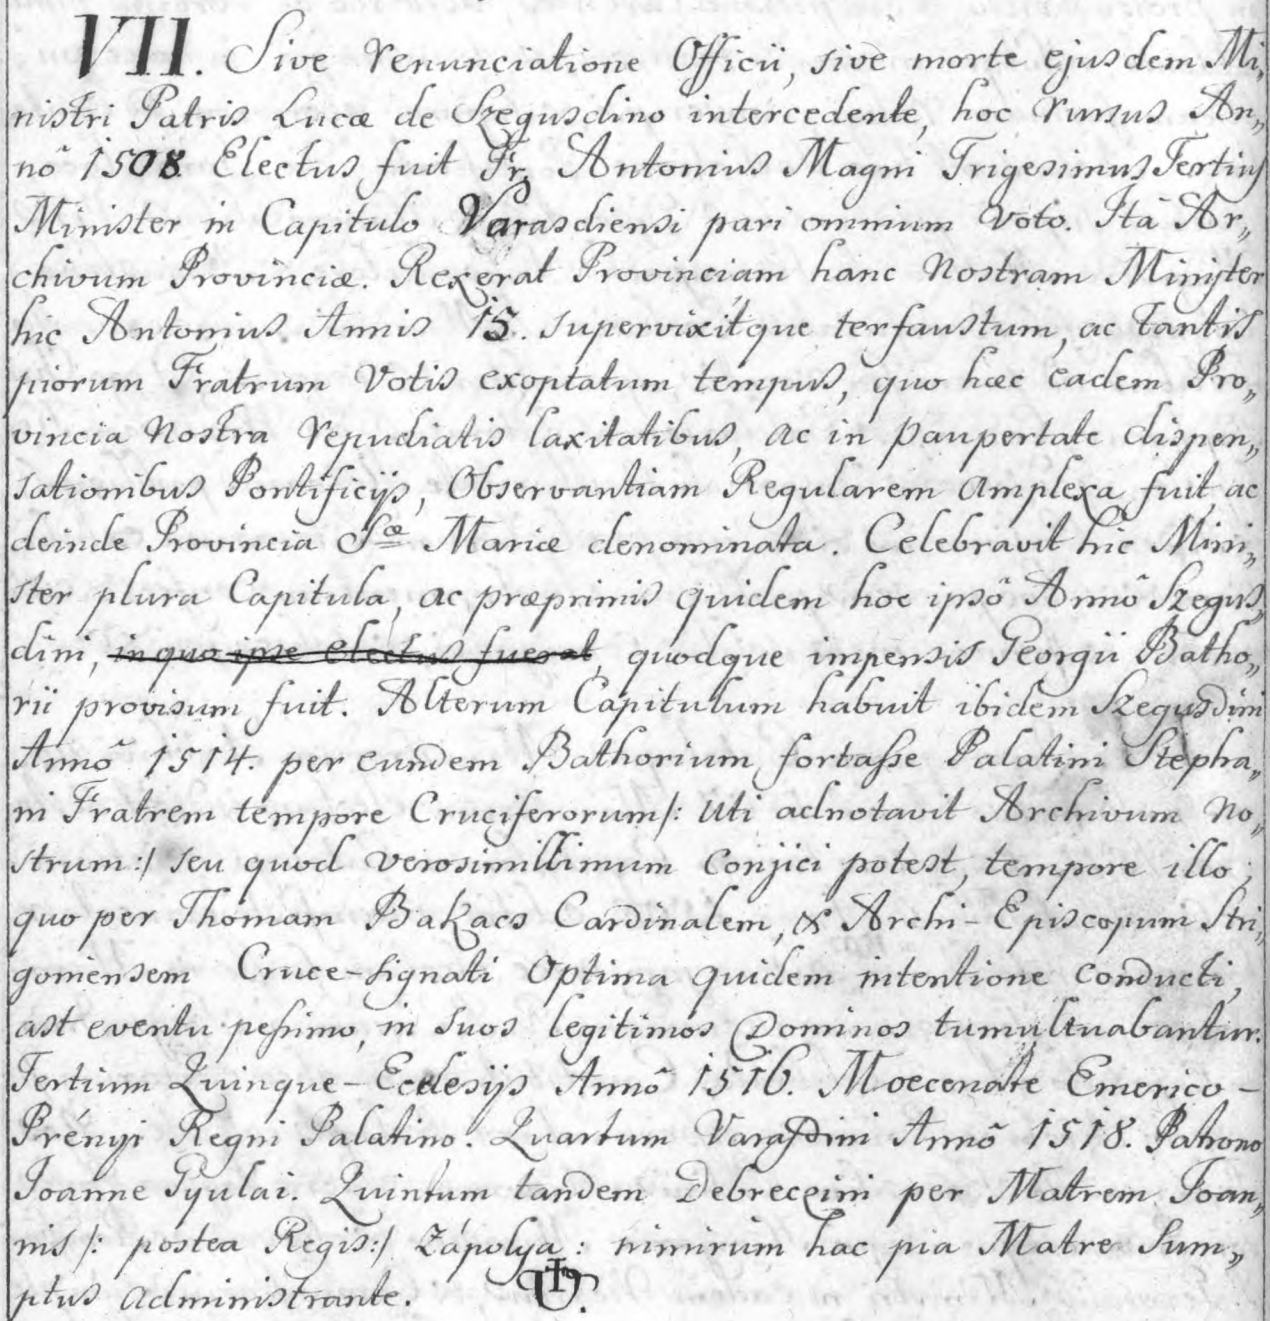 VII. Sive renunciatione Officii, sive morte ejusdem Mi„
nistri Patris Lucæ de Szegusdino intercedente, hoc rursus An„
nô 1508 Electus fuit Fr. Antonius Magni Trigesimus Tertius
Minister in Capitulo Varasdiensi pari omnium voto. Ità Ar„
chivum Provinciæ. Rexerat Provinciam hanc nostram Minister
hic Antonius Annis 15. supervixitque terfaustum, ac tantis
piorum Fratrum votis exoptatum tempus, quo hæc eadem Pro„
vincia nostra repudiatis laxitatibus, ac in paupertate dispen„
sationibus Pontificijs, Observantiam Regularem amplexa fuit, ac
deinde Provincia Sæ Mariæ denominata. Celebravit hic Mini„
ster plura Capitula, ac præprimis quidem hoc ipsô Annô Szegus„
dini, in quo ipse electus fuerat, quodque impensis Georgii Batho„
rii provisum fuit. Alterum Capitulum habuit ibidem Szegusdini
Annô 1514. per eundem Bathorium fortasse Palatini Stepha„
ni Fratrem tempore Cruciferorum/: uti adnotavit Archivum No„
strum:/ seu quod verosimillimum conjici potest, tempore illo,
quo per Thomam Bakacs Cardinalem, & Archi-Episcopum Stri„
goniensem Cruce-signati optima quidem intentione conducti,
ast eventu pessimo, in suos legitimos Dominos tumultuabantur.
Tertium Quinque-Ecclesijs Annô 1516. Moecenate Emerico-
Prényi Regni Palatino. Quartum Varasdini Annô 1518. Patrono
Joanne Gyulai. Quintum tandem Debreczini per Matrem Joan„
nis /: postea Regis:/ Zápolya: nimirum hac pia Matre sum„
ptus administrante.